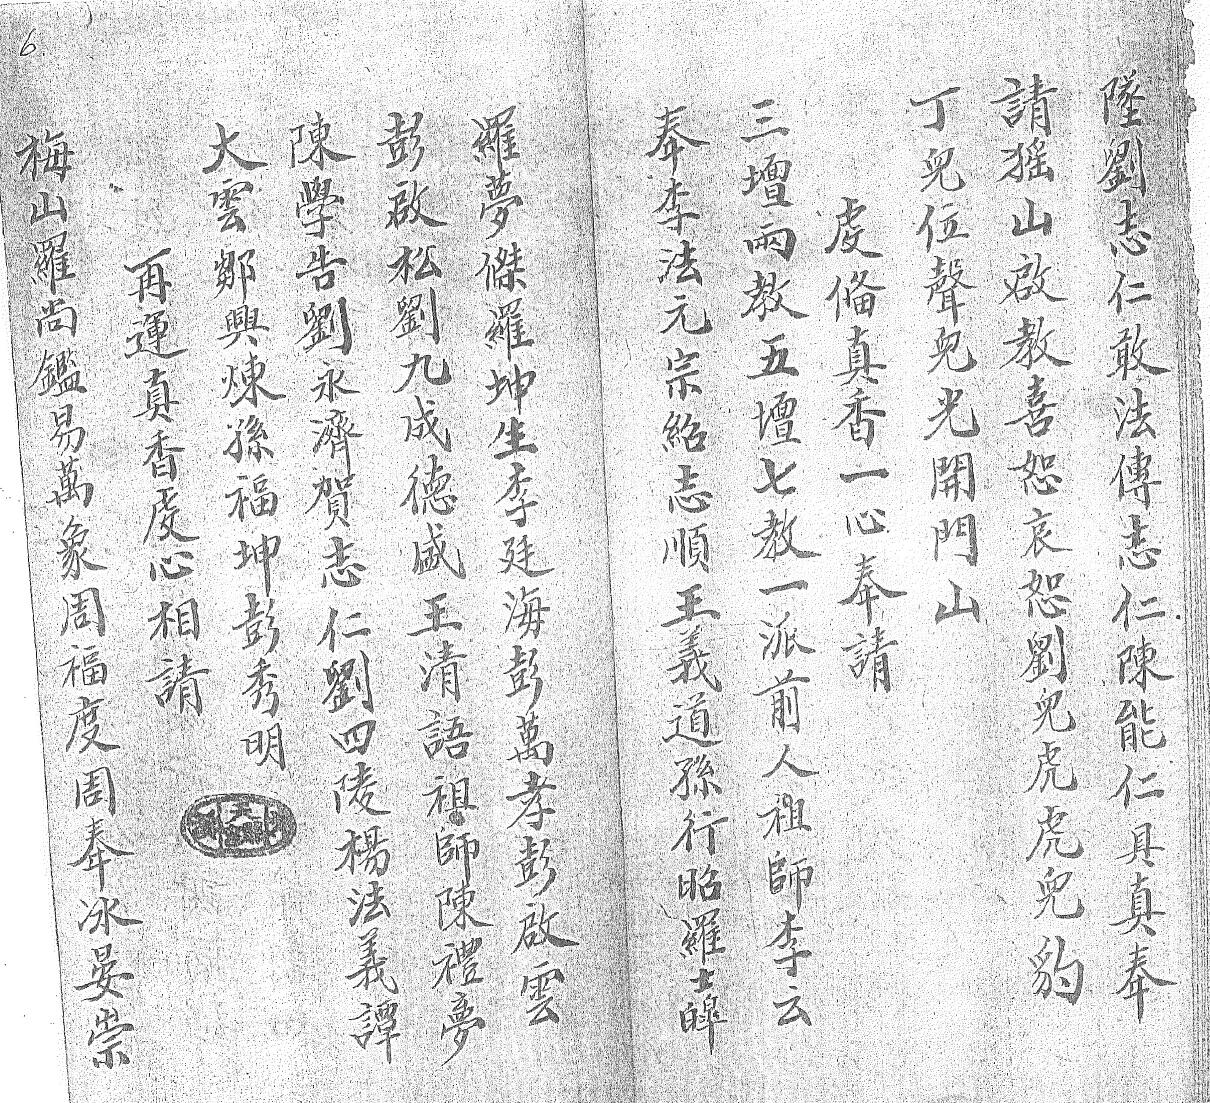 墜劉志仁敢法傳志仁陳能仁具真奉
請猺山啟教喜恕哀恕劉兒虎虎兒豹
丁兒位聲兒光開門山
虔俻真香一心奉請
三壇兩教五壇七教一派前人祖師李云
奉李法元宗紹志順王義道孫行昭羅士皞
羅夢傑羅坤生李廷海彭萬孝彭啟雲
彭啟松劉九成德盛王清語祖師陳禮夢
陳學告劉永濟賀志仁劉四陵楊法義譚
大雲鄒興煉孫福坤彭秀明
再運真香虔心相請
梅山羅尚鑑易萬象周福度周奉冰晏崇
6